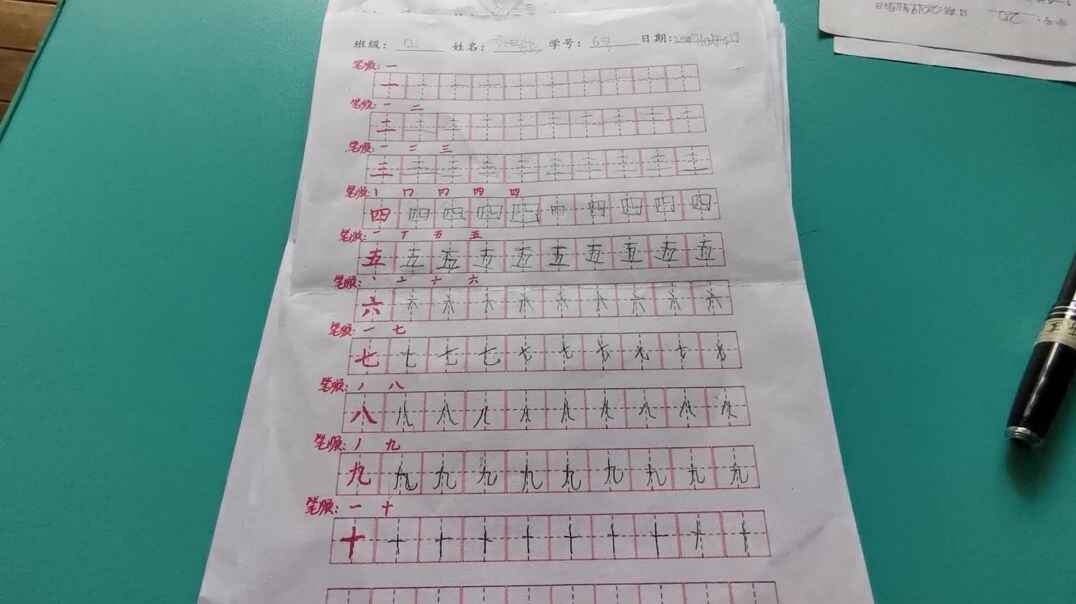 班级： 姓名： 学号： 日期：
笔顺：一
一 一 一 一 一 一 一 一 一 一
笔顺：一 二
二 二 二 二 二 二 二 二 二 二
笔顺：一 二 三
三 三 三 三 三 三 三 三 三 三
笔顺：丨 冂 四 四
四 四 四 四 四 四 四 四 四 四
笔顺：一 丅 五 五
五 五 五 五 五 五 五 五 五 五
笔顺：丶 亠 六
六 六 六 六 六 六 六 六 六 六
笔顺：一 七
七 七 七 七 七 七 七 七 七 七
笔顺：丿 八
八 八 八 八 八 八 八 八 八 八
笔顺：丿 九
九 九 九 九 九 九 九 九 九 九
笔顺：一 十
十 十 十 十 十 十 十 十 十 十